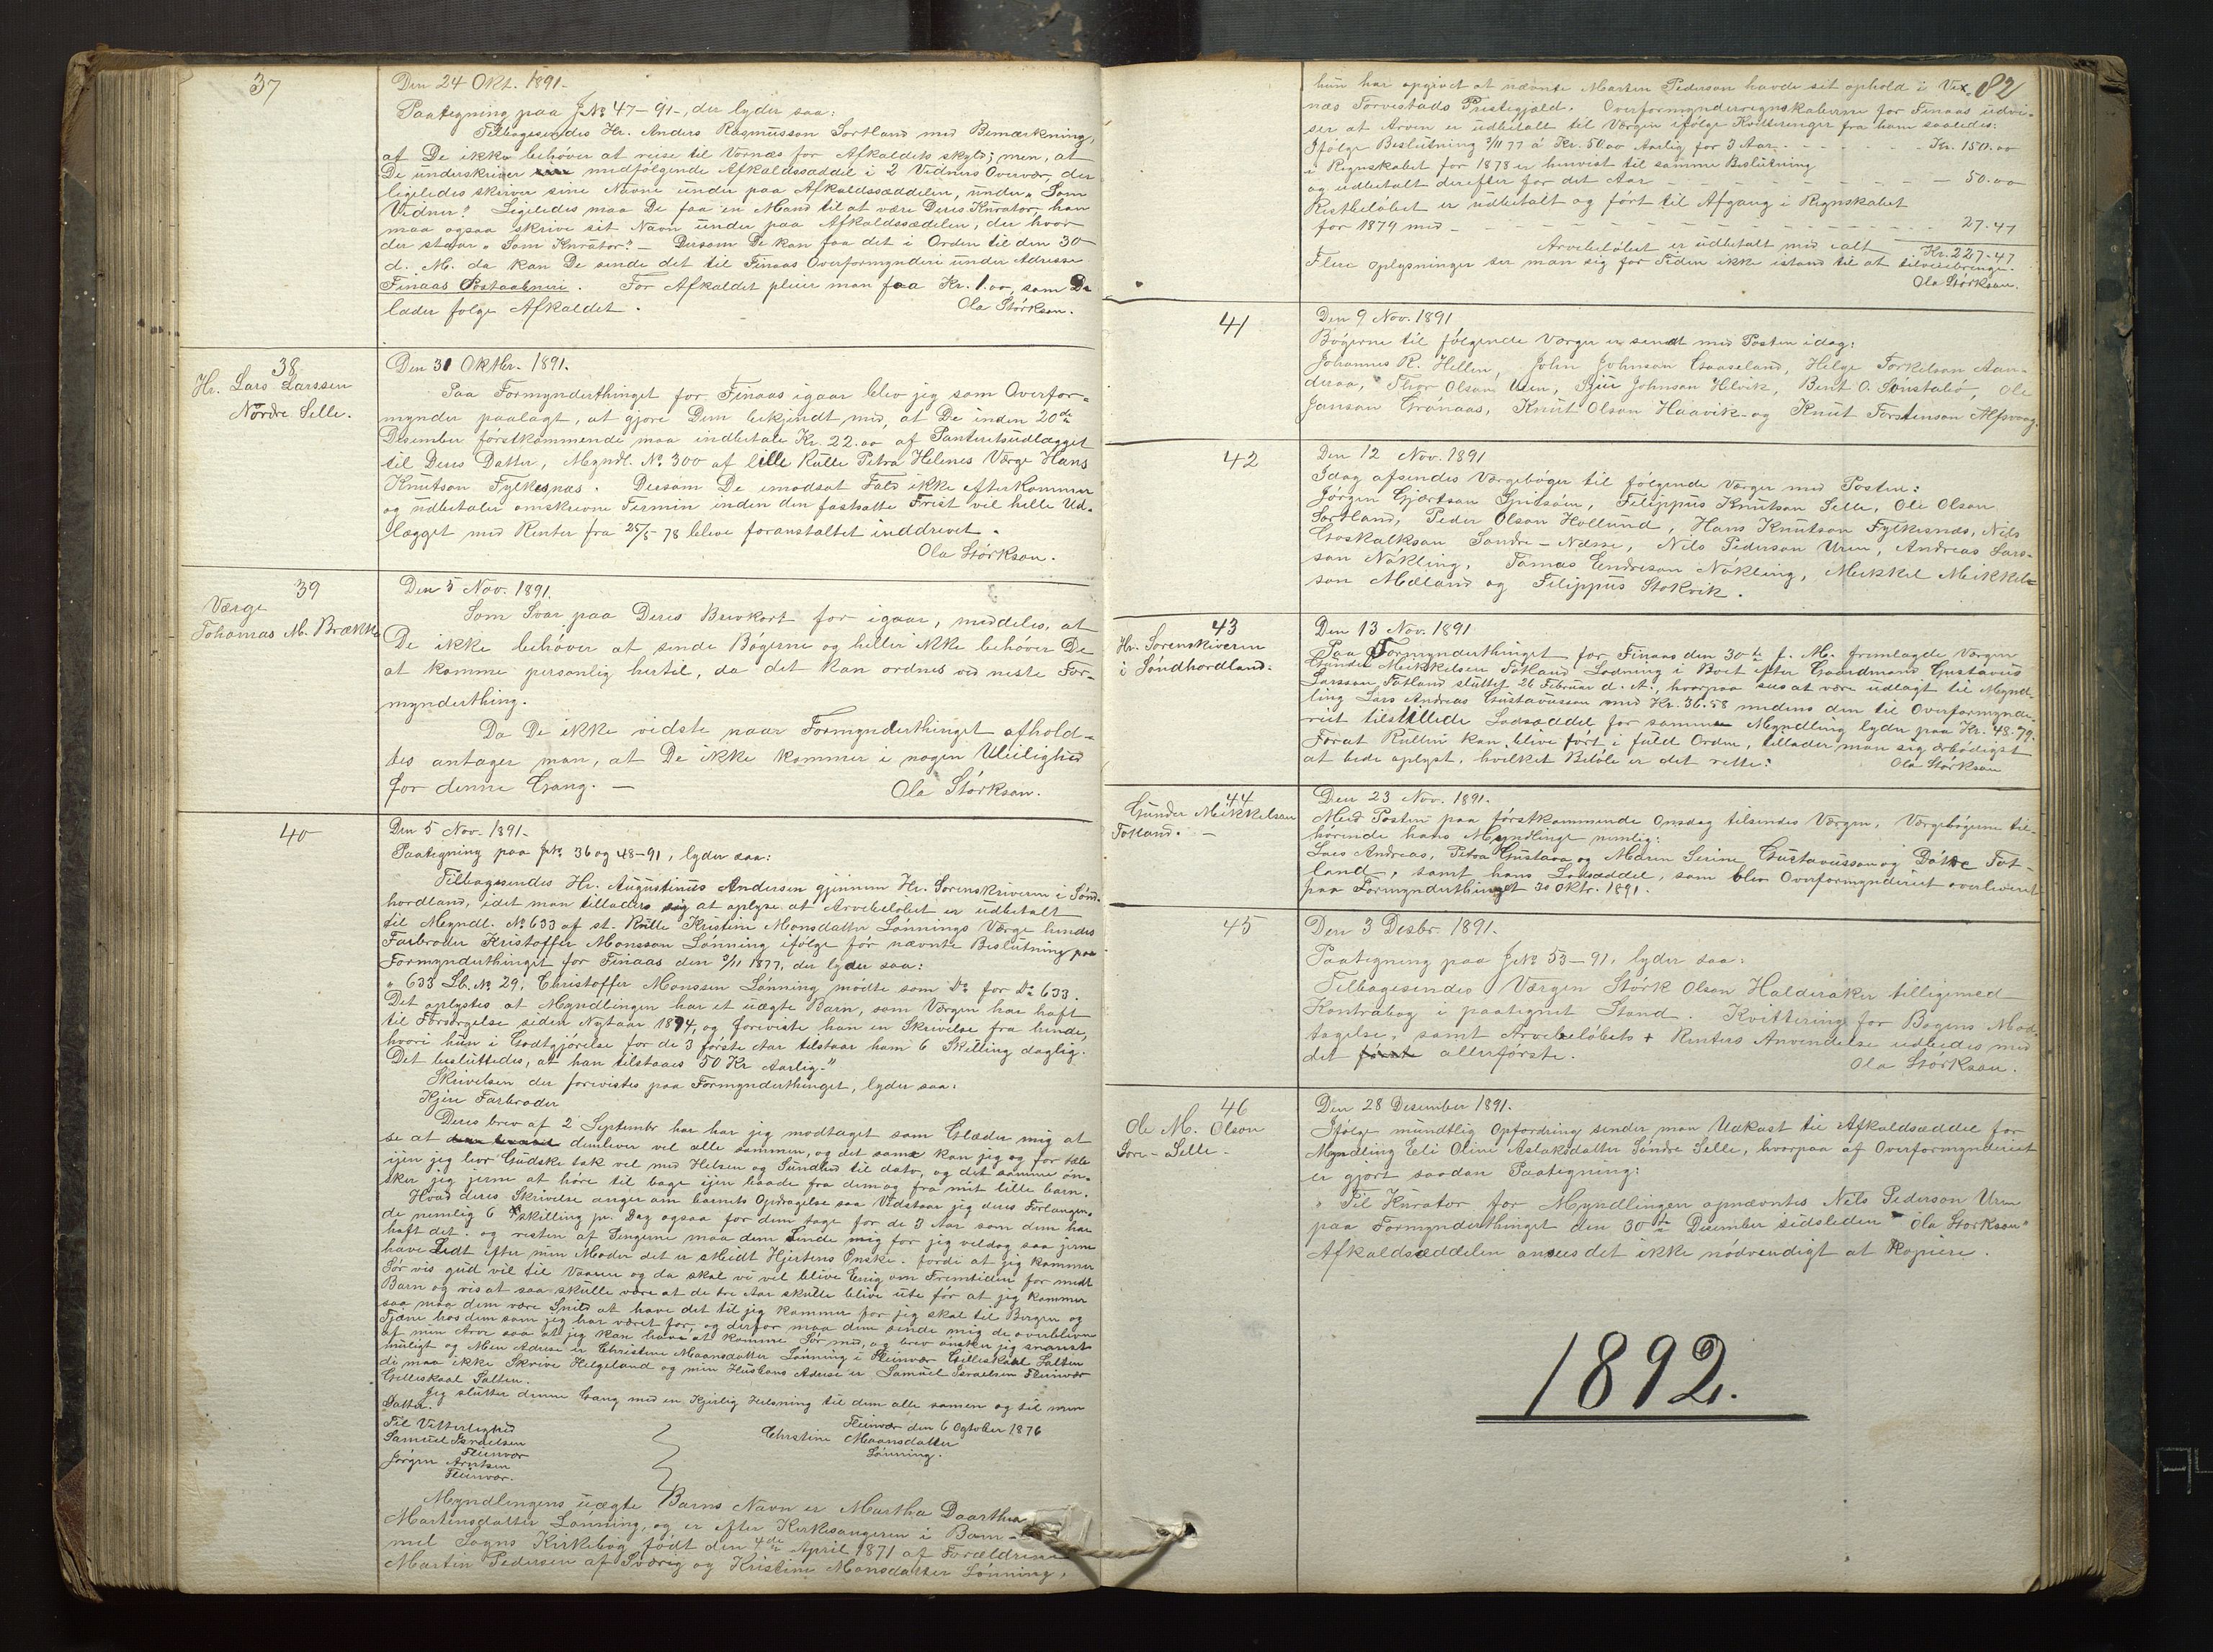 37
Den 24 Okt. 1891.
Paategning paa J№ 47-91-, der lyder saa:
Tilbagesendes Hr. Anders Rasmusson Sortland med Bemærkning,
at De ikke behøver at reise til Vornæs for Afkaldets skyld; men, at
De underskriver medfølgende Afkaldssæddel i 2 Vidners Overvær, der
ligeledes skriver sine Navne under paa Afkaldssæddelen, under „Som
Vidner". Ligeledes maa De faa en Mand til at være Deres Kurator, han
maa ogsaa skrive sit Navn under paa Afkaldssædelen, der hvor
der staar „Som Kurator". - Dersom De kan faa det i Orden til den 30
d. M. da kan De sende det til Finaas Overformynderi under Adresse
Finaas Postaabneri. For Afkaldet pleier man faa Kr. 1.00, som De
lader følge Afkaldet.
Ola Størkson.
38
Hr. Lars Larssen
Nordre Selle.
Den 31 Oktbr. 1891.
Paa Formynderthinget for Finaas igaar blev jeg som Overfor-
mynder paalagt, at gjøre Dem bekjendt med, at De inden 20de
Desember førstkommende maa indbetale Kr. 22.00 af Panteretsudlægget
til Deres Datter, Myndl. № 300 af lille Rulle Petra Helenes Værge Hans
Knutson Fylkesnæs. Dersom De imodsat Fald ikke efterkommer
og udbetaler omskrevne Termin inden den fastsatte Frist vil hele Ud-
lægget med Renter fra 25/5-78 blive foranstaltet inddrevet.
Ola Størkson.
39
Værge
Tohamas M. Brække
Den 5 Nov. 1891.
Som Svar paa Deres Brevkort for igaar, meddeles, at
De ikke behøver at sende Bøgerne og heller ikke behøver De
at komme personlig hertil, da det kan ordnes ved neste For-
mynderthing.
Da De ikke vidste naar Formynderthinget afhold-
tes antager man, at De ikke kommer i nogen Uleilighed
for denne Gang. -
Ola Størkson.
40
Den 5 Nov. 1891.
Paategning paa J№ 36 og 48-91, lyder saa:
Tilbagesendes Hr. Augustinus Andersen gjennem Hr. Sorenskriveren i Sønd-
hordland, idet man tillader sig at oplyse at Arvebeløbet er udbetalt
til Myndl. № 633 af st. Rulle Kristine Monsdatter Lønnings Værge hendes
Farbroder Kristoffer Monsson Lønning ifølge før nævnte Beslutning paa
Formynderthinget for Finaas den 3/11 1877, der lyder saa:
„633 Lb. № 29. Christoffer Monssen Lønning mødte som Vr for Vr 633.
Det oplystes at Myndlingen har et uægte Barn, som Værgen har haft
til Forsørgelse siden Nytaar 1874, og foreviste han en Skrivelse fra hende,
hvori hun i Godtgjørelse for de 3 første Aar tilstaar ham 6 Skilling daglig.
Det besluttedes, at han tilstaaes 50 Kr Aarlig."
Skrivelsen der forevistes paa Formynderthinget, lyder saa:
Kjere Farbroder
Deres brev af 2 Septembr har har jeg modtaget som Glæder mig at
se at demlever vel alle sammen, og det samme kan jeg og for tæle
ijen jeg lever Gudske tak vel med Helsen og Sundhed til dato, og det samme øn-
sker jeg jerne at høre til bage ijen baade fra dem og fra mit lille barn.
Hvad deres Skrivelse anger om barnets Opdragelse saa Vedstaar jeg deres Forlangen-
de nemlig 6 skilling pr. Dag ogsaa for dem tage for de 3 Aar som dem har
haft det. og resten af Pengerne maa dem Sende mig for jeg veldog saa jerne
have Ledt efter min Moder det er stheidt Hjertens Ønske. fordi at jeg kommer
Sør vis gud vil til Vaaren og da skal vi vel blive Enig om Fremtiden for medt
Barn og vis at saa skulle være at de tre Aar skulle blive ute før at jeg kommer
saa maa dem være Snild at have det til jeg kommer for jeg skal til Bergen og
Tjæne hos dem som jeg har været for, og derfor maa dem sende mig de overbleven
af min Arve saa at jeg kan have at komme Sør med, og brev ønsker jeg snarest
muligt og Men Adrese er Christine Maansdatter Lønning i Fleinvær Gilleskaal Salten
di maa ikke Skrive Helgeland og min Husbons Adrese er Samuel Israelsen Fleinvær
Gilleskaal Salten.
Jeg slutter denne Gang med en Kjerlig Helsning til dem alle samen og til min
Datter.
Fleinvær den 6 Ogtober 1876
Christine Maansdatter
Lønning.
Til Vitterlighed
Samuel Israelsen
Fleinvær
Jørgen Arntsen
Fleinvær.
Myndlingens uægte Barns Navn er Martha Daarthea
Martensdatter Lønning, og er efter Kirkesangeren i Bøm-
mel Sogns Kirkebog født den 4de April 1871 af Forældrene
Martin Pedersen af Sværig og Kristine Monsdatter Lønning,
82
hun har opgivet at nævnte Marten Pederson havde sit ophold i Vex-
næs Torvestads Prestegjæld. Overformynderregnskaberne for Finaas udvi-
ser at Arven er udbetalt til Værgen ifølge Kvitteringer fra ham saaledes:
Ifølge Beslutning 3/11 77 à Kr. 50.00 Aarlig for 3 Aar - - - - Kr. 150.00
i Regnskabet for 1878 er henvist til samme Beslutning
og udbetalt derefter for det Aar - - - - - 50.00
Restbeløbet er udbetalt og ført til Afgang i Regnskabet
for 1879 med - - - - - 27.47
Arvebeløbet er udbetalt med ialt Kr. 227.47
Flere oplysninger ser man sig for Tiden ikke istand til at tilveiebringe.
Ola Størkson.
41
Den 9 Nov. 1891
Bøgerne til følgende Værger er sendt med Posten idag:
Johannes R. Hellen, John Johnson Gaaseland, Helge Torkelson Aan-
deraa, Thor Olson Uren, Sjur Johnson Helvik, Bent O. Sønstabø, Ole
Janson Grønaas, Knut Olson Haavik og Knut Torstenson Alfsvaag.
42
Den 12 Nov. 1891
Idag afsendes Værgebøger til følgende Værger med Posten:
Jørgen Gjærtson Spidsøen, Filippus Knutson Selle, Ole Olson
Sortland, Peder Olson Hollund, Hans Knutson Fylkesnæs, Nils
Goskalkson Søndre-Næsse, Nils Pederson Uren, Andreas Lars-
son Nøkling, Tomas Endreson Nøkling, Meikkel Meikkel-
son Mæland og Filippus Stokvik.
43
Hr. Sorenskriveren
i Søndhordland:
Den 13 Nov. 1891
Paa Formynderthinget for Finaas den 30te f. M. fremlagde Værgen
Gunder Meikkelsen Totland Lodning i Boet efter Gaardmand Gustavus
Larsson Totland sluttet 26 Februar d. A., hvorpaa sees at være udlagt til Mynd-
ling Lars Andreas Gustavusson med Kr. 36.58 medens den til Overformynde-
riet tilstillede Lodsæddel for samme Myndling lyder paa Kr. 48.79.
Forat Rullen kan blive ført i fuld Orden, tillader man sig ærbødigst
at bede oplyst, hvilket Beløb er det rette:
Ola Størkson
44
Gunder Meikkelson
Totland. -
Den 23 Nov. 1891.
Med Posten paa førstkommende Onsdag tilsendes Værgen, Værgebøgerne til-
hørende hans Myndlinge nemlig:
Lars Andreas, Petra Gustava og Maren Serine Gustavusson og Døtre Tot-
land, samt hans Lodsæddel, som blev Overformynderiet overleveret
paa Formynderthinget 30 Oktr. 1891.
45
Den 3 Desbr. 1891.
Paategning paa J№ 53-91, lyder saa:
Tilbagesendes Værgen Størk Olson Halderaker tilligemed
Kontrabog i paategnet Stand. Kvittering for Bogens Mod-
tagelse, samt Arvebeløbets + Renters Anvendelse udbedes med
det første allerførste.
Ola Størkson.
46
Ole M. Olson
Søre-Selle.
Den 28 Desember 1891.
Ifølge mundtlig Opfordring sender man Udkast til Afkaldsæddel for
Myndling Eli Oline Aslaksdatter Søndre Selle, hvorpaa af Overformynderiet
er gjort saadan Paategning:
„Til Kurator for Myndlingen opnævntes Nils Pederson Uren
paa Formynderthinget den 30te Desember sidsleden Ola Størkson"
Afkaldsæddelen ansees det ikke nødvendigt at Kopiere.
1892.